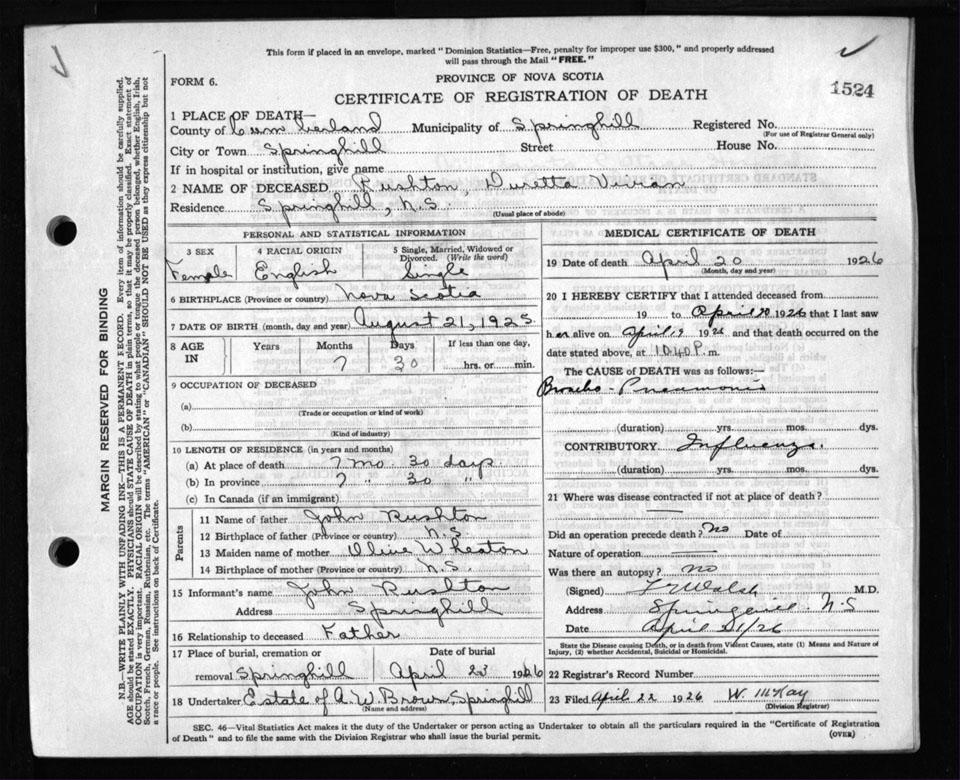 This form if placed in an envelope, marked "Dominion Statistics—Free, penalty for improper use $300," and properly addressed
will pass through the Mail "FREE."
FORM 6.
PROVINCE OF NOVA SCOTIA
1524
CERTIFICATE OF REGISTRATION OF DEATH
1 PLACE OF DEATH—
County of Cumberland Municipality of Springhill Registered No.
(For use of Registrar General only)
City or Town Springhill Street House No.
If in hospital or institution, give name
2 NAME OF DECEASED Rushton, Duretta Vivian
Residence Springhill, N.S.
(Usual place of abode)
PERSONAL AND STATISTICAL INFORMATION
3 SEX 4 RACIAL ORIGIN 5 Single, Married, Widowed or Divorced. (Write the word)
Female English Single
6 BIRTHPLACE (Province or country) Nova Scotia
7 DATE OF BIRTH (month, day and year) August 21, 1925.
8 AGE IN Years Months Days If less than one day,
7 30 hrs. or min.
9 OCCUPATION OF DECEASED
(a)
(Trade or occupation or kind of work)
(b)
(Kind of industry)
10 LENGTH OF RESIDENCE (in years and months)
(a) At place of death 7 mo 30 days
(b) In province 7 " 30 "
(c) In Canada (if an immigrant)
Parents
11 Name of father John Rushton
12 Birthplace of father (Province or country) N.S.
13 Maiden name of mother Olive Wheaton
14 Birthplace of mother (Province or country) N.S.
15 Informant's name John Rushton
Address Springhill
16 Relationship to deceased Father
17 Place of burial, cremation or Date of burial
removal Springhill April 23 1926
18 Undertaker Estate of A. W. Brown, Springhill
(Name and address)
MEDICAL CERTIFICATE OF DEATH
19 Date of death April 20 1926
(Month, day and year)
20 I HEREBY CERTIFY that I attended deceased from
19 to April 20 1926 that I last saw
h er alive on April 19 1926 and that death occurred on
date stated above, at 10.40 P. m.
The CAUSE OF DEATH was as follows:—
Broncho-Pneumonia
(duration) yrs. mos. dys.
CONTRIBUTORY Influenza.
(duration) yrs. mos. dys.
21 Where was disease contracted if not at place of death?
Did an operation precede death? No Date of
Nature of operation
Was there an autopsy? no
(Signed) Walsh M.D.
Address Springhill N.S
Date April 21/26
State the Disease causing Death, or in death from Violent Causes, state (1) Means and Nature of
Injury, (2) whether Accidental, Suicidal or Homicidal.
22 Registrar's Record Number
23 Filed April 22 1926 W. McKay
(Division Registrar)
SEC. 46—Vital Statistics Act makes it the duty of the Undertaker or person acting as Undertaker to obtain all the particulars required in the "Certificate of Registration
of Death" and to file the same with the Division Registrar who shall issue the burial permit. (OVER)
MARGIN RESERVED FOR BINDING
N.B.—WRITE PLAINLY WITH UNFADING INK—THIS IS A PERMANENT RECORD. Every item of information should be carefully supplied.
AGE should be stated EXACTLY. PHYSICIANS should STATE CAUSE OF DEATH in plain terms, so that it may be properly classified. Exact statement of
OCCUPATION is very important. RACIAL ORIGIN will be described by stating to what people or tongue the deceased person belonged, whether English, Irish,
Scotch, French, German, Russian, Ruthenian, etc. The terms "AMERICAN" or "CANADIAN" SHOULD NOT BE USED as they express citizenship but not
a race or people. See instructions on back of Certificate.